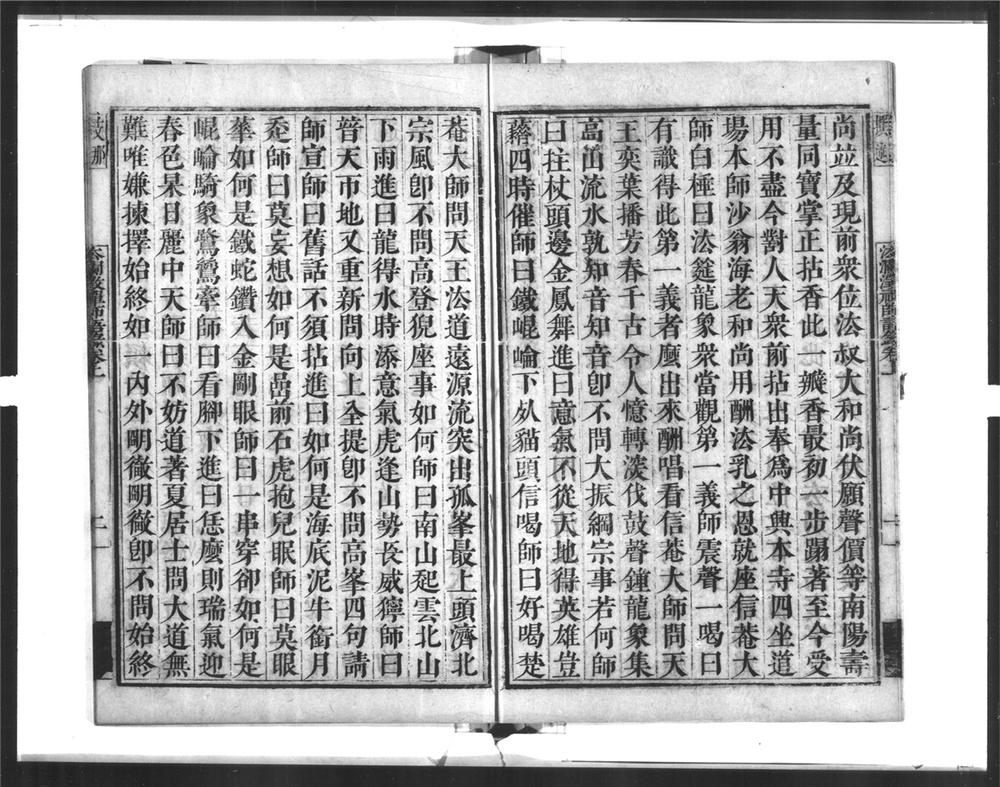 尚竝及現前衆位法叔大和尚伏願聲價等南陽壽
量同寶掌正拈香此一瓣香最初一步蹋著至今受
用不盡今對人天衆前拈出奉爲中興本寺四坐道
場本師沙翁海老和尚用酬法乳之恩就座信菴大
師白椎曰法筵龍象衆當觀第一義師震聲一喝曰
有識得此第一義者麼出來酬唱看信菴大師問天
王奕葉播芳春千古令人憶轉深伐鼓聲鐘龍象集
高山流水孰知音知音卽不問大振綱宗事若何師
曰拄杖頭邊金鳳舞進曰意氣不從天地得英雄豈
藉四時催師曰鐵崐崘下夘貓頭信喝師曰好喝楚
菴大師問天王法道遠源流突出孤峯最上頭濟北
宗風卽不問高登猊座事如何師曰南山起雲北山
下雨進曰龍得水時添意氣虎逢山勢長威獰師曰
普天帀地又重新問向上全提卽不問高峯四句請
師宣師曰舊話不須拈進曰如何是海底泥牛銜月
走師曰莫妄想如何是嵒前石虎抱兒眠師曰莫眼
華如何是鐵蛇鑽入金剛眼師曰一串穿卻如何是
崐崘騎象鷺鷥牽師曰看腳下進曰恁麼則瑞氣迎
春色杲日麗中天師曰不妨道著夏居士問大道無
難唯嫌揀擇始終如一內外明徹明徹卽不問始終